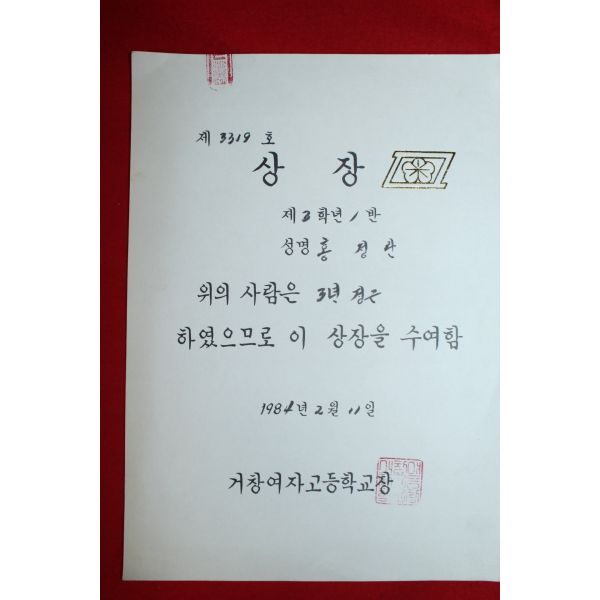 제 3319 호
상 장
제 3 학년 1 반
성명 홍 정 란
위의 사람은 3년 정근
하였으므로 이 상장을 수여함
1984년 2월 11일
거창여자고등학교장